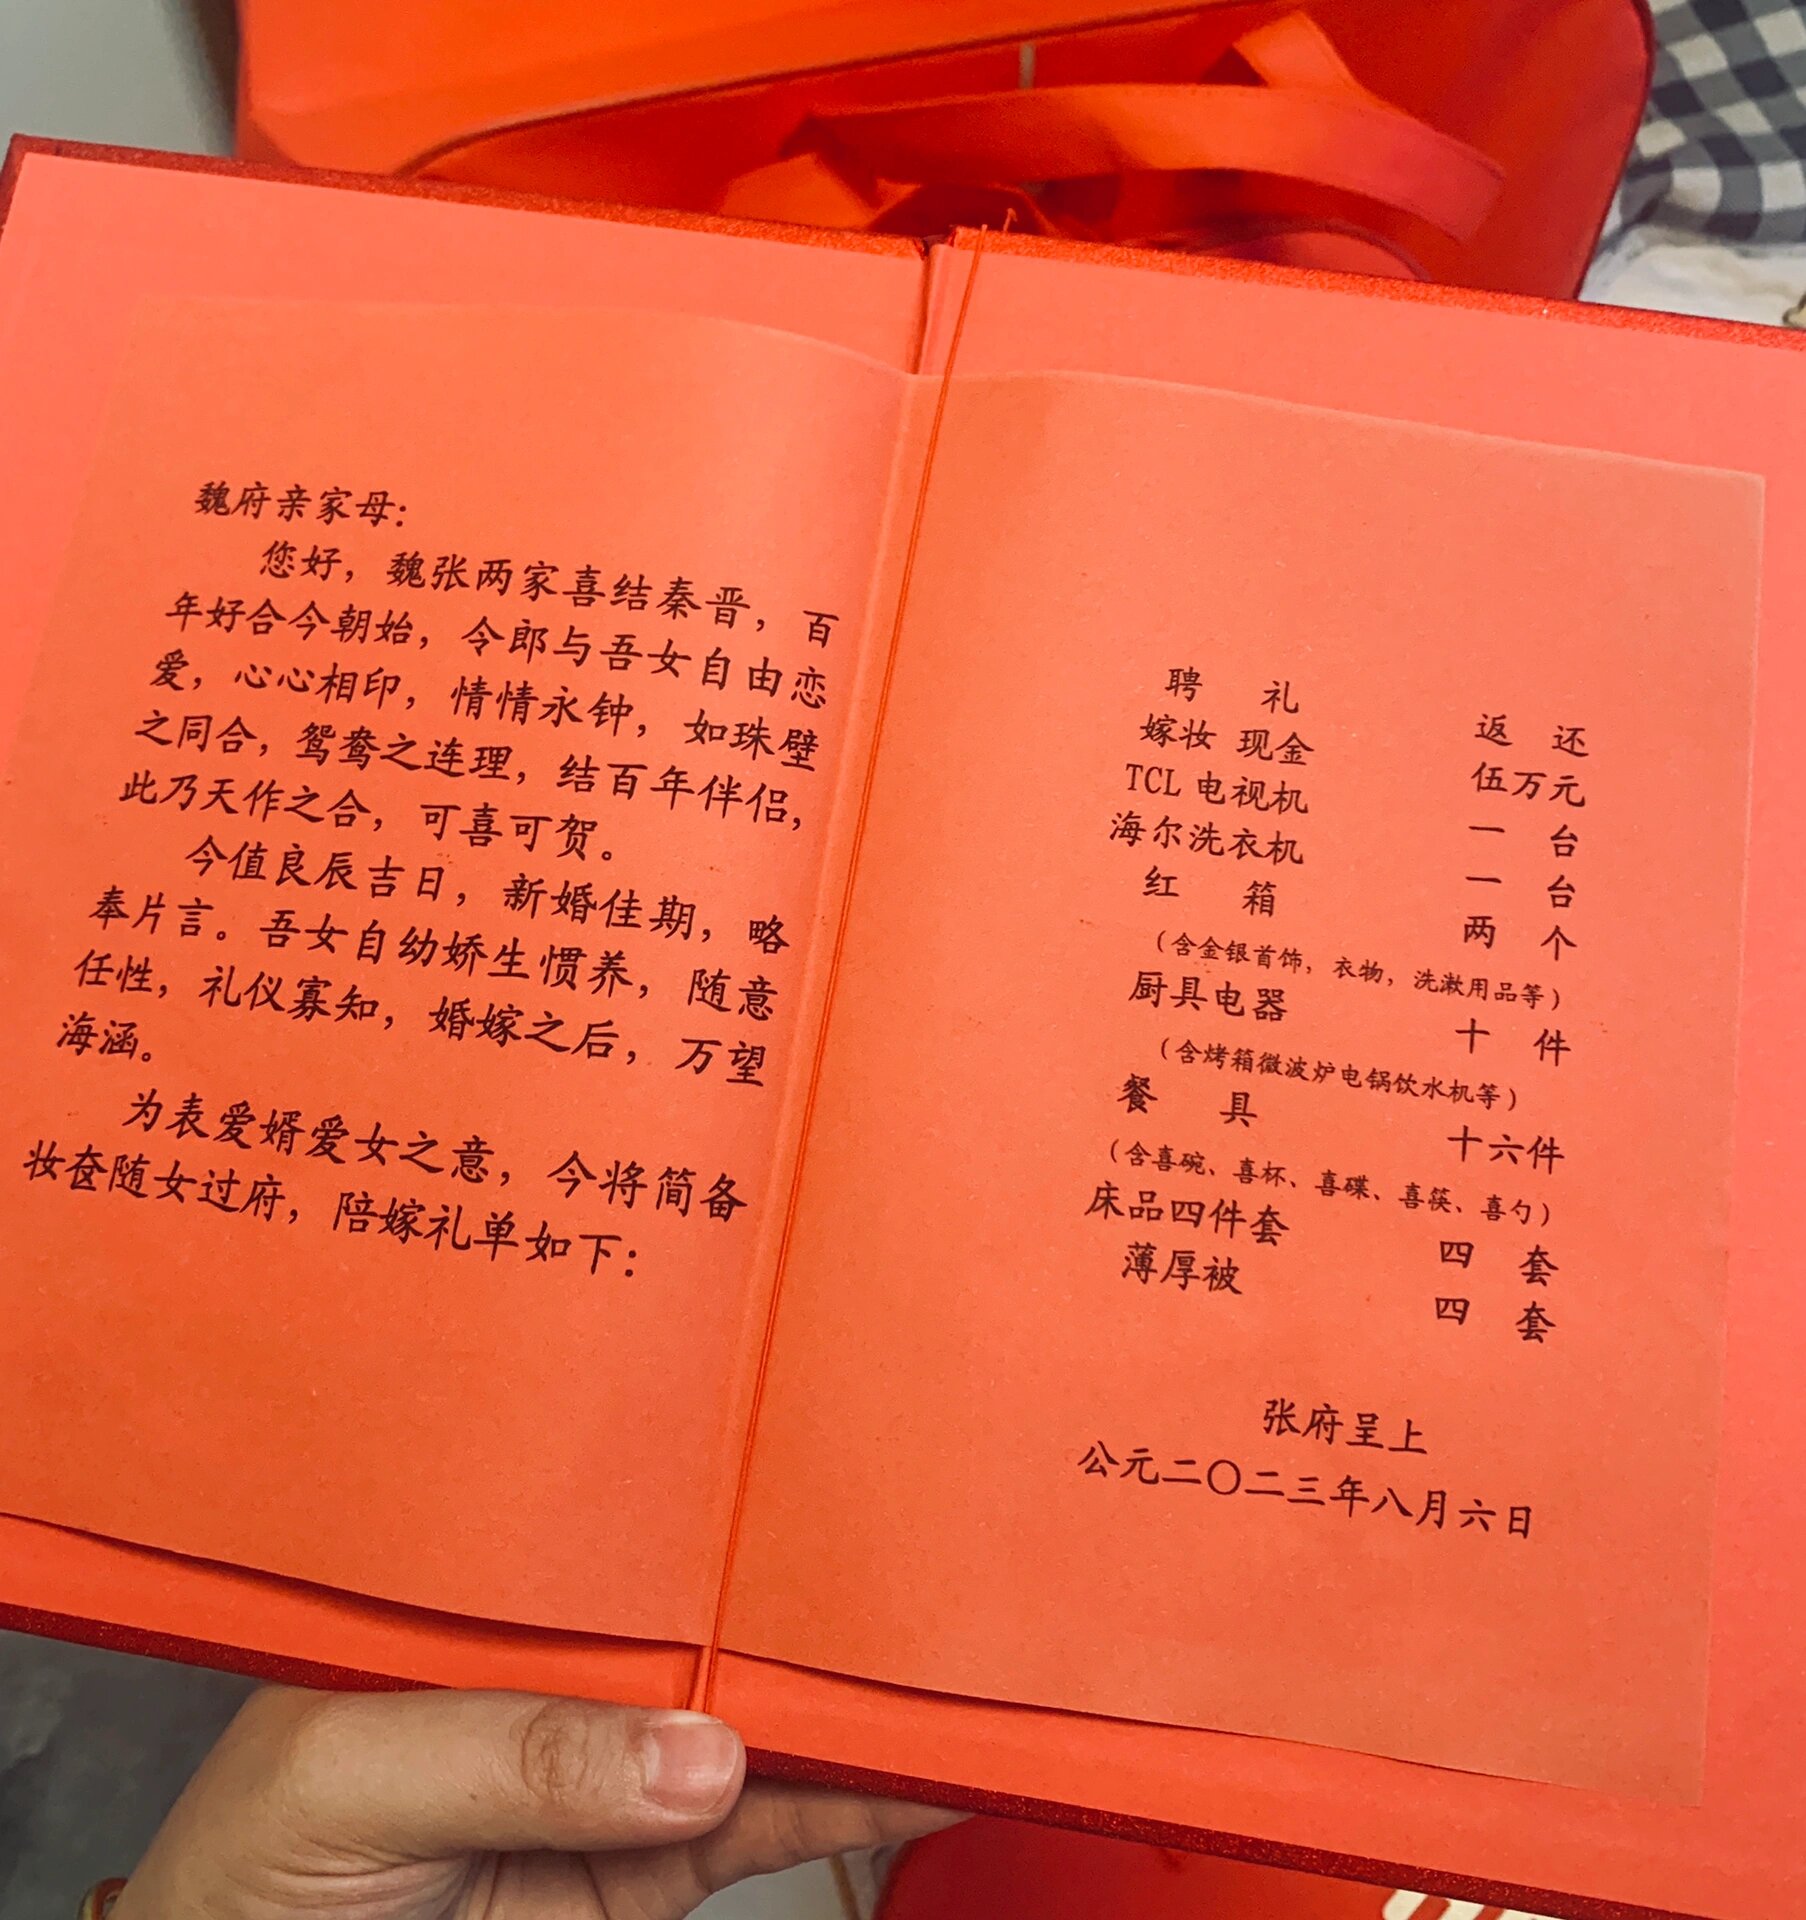 魏府亲家母：
您好，魏张两家喜结秦晋，百
年好合今朝始，令郎与吾女自由恋
爱，心心相印，情情永钟，如珠壁
之同合，鸳鸯之连理，结百年伴侣，
此乃天作之合，可喜可贺。
今值良辰吉日，新婚佳期，略
奉片言。吾女自幼娇生惯养，随意
任性，礼仪寡知，婚嫁之后，万望
海涵。
为表爱婿爱女之意，今将简备
妆奁随女过府，陪嫁礼单如下：
聘 礼 返 还
嫁妆 现金 伍万元
TCL 电视机 一 台
海尔洗衣机 一 台
红 箱 两 个
（含金银首饰，衣物，洗漱用品等）
厨具电器 十 件
（含烤箱微波炉电锅饮水机等）
餐 具 十六件
（含喜碗、喜杯、喜碟、喜筷、喜勺）
床品四件套 四 套
薄厚被 四 套
张府呈上
公元二〇二三年八月六日